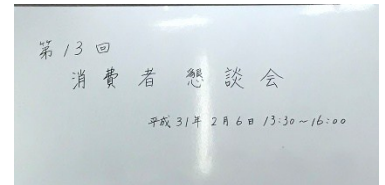 第13回
消費者懇談会
平成31年2月6日 13:30~16:00